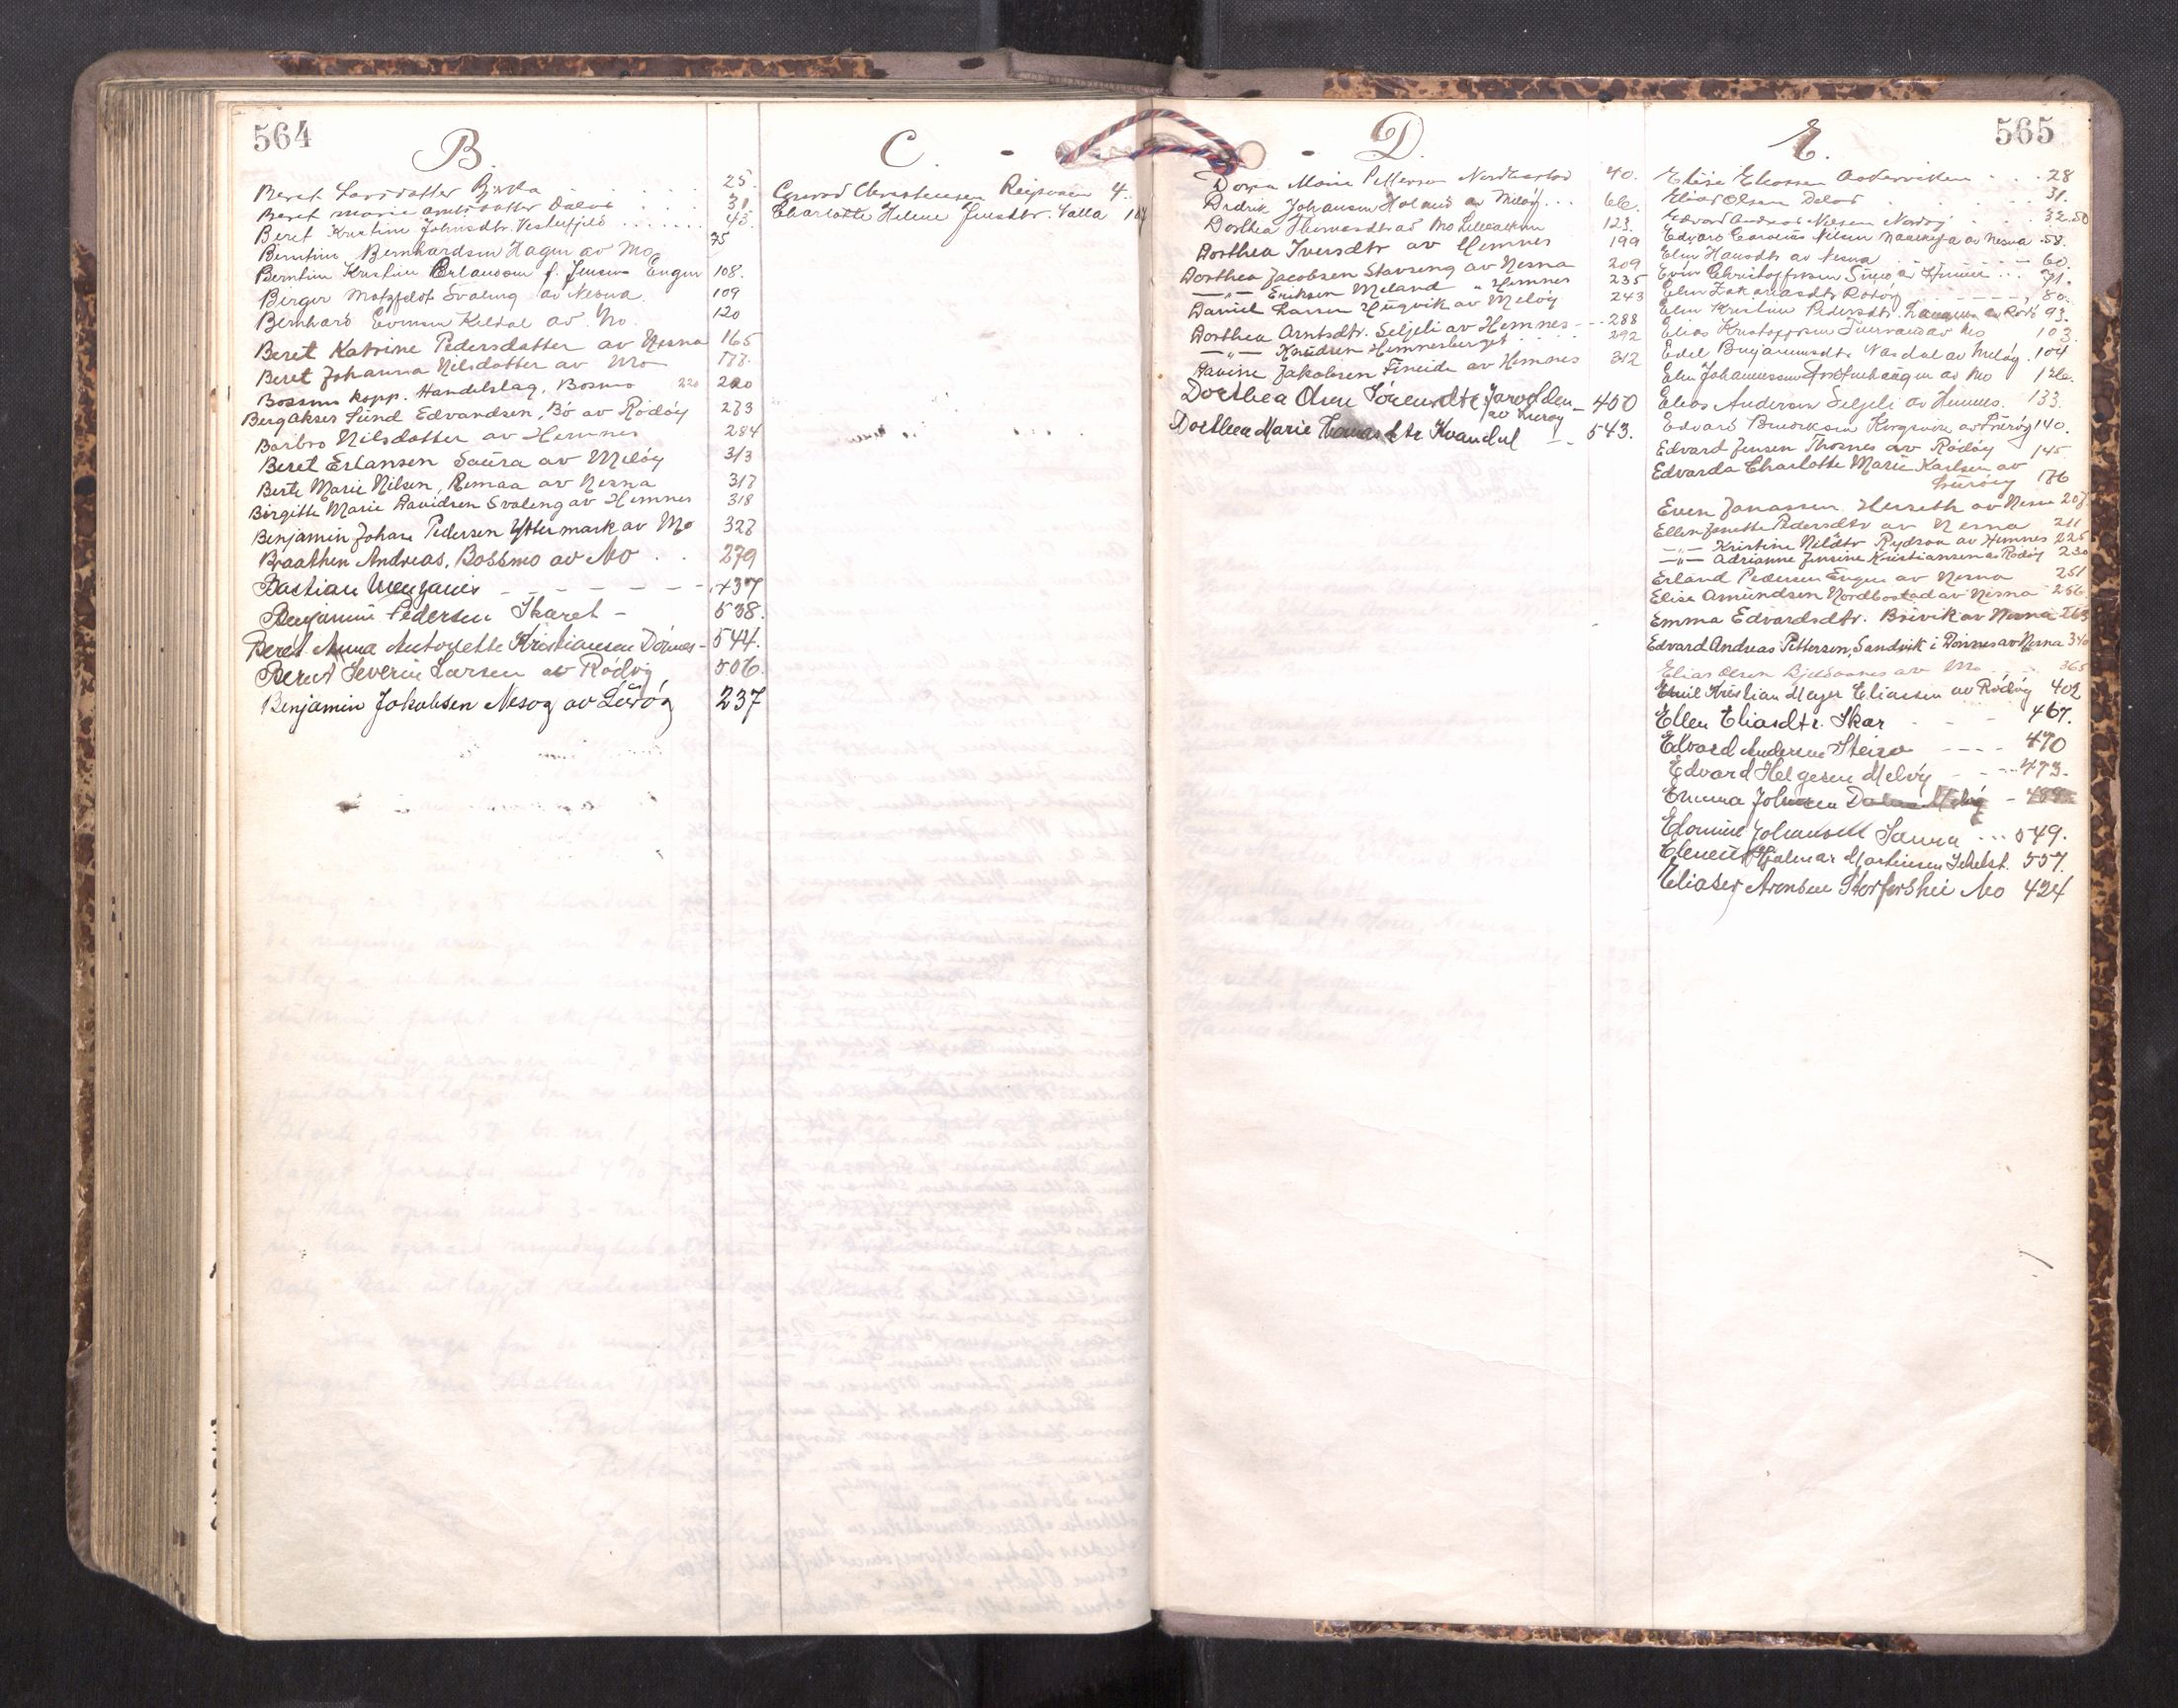 564
B.
Beret Larsdatter 25.
Beret Marie 31.
Beret Kristine Johnsdtr. Vesterfjeld 45.
Bernhardsen Hagen av Mo 75
Berntine Kristine Erlandsen f. Jensen Engen 108.
Berger Motzfeldt Svaleng av Nesna. 109
Bernhard Evensen Keldal av Mo. 120
Beret Katrine Pedersdatter av Nesna 165
Beret Johanna Nilsdatter av Mo 177.
Bossmo kopp. Handelslag, Bosmo 220 220
Bergakser Lund Edvardsen, Bø av Rödöy 273
Barbro Nilsdatter av Hemnes 284
Beret Erlansen Saura av Melöy 313
Berte Marie Nilsen, Remaa av Nesna 317
Birgitte Marie Davidsen Svaleng av Hemnes 318
Benjamin Johan Pedersen Yttermark av Mo 327
Braathen Andreas, Bossmo av Mo 279
Bastian 437
Benjamin Pedersen Skaret 538.
Beret Anna Antonette Kristiansen Dönnes 544.
Bernt Severin Larsen av Rödöy 506.
Benjamin Jakobsen Nesøy av Lurøy 237
C.
Conrad Christensen 4.
Charlotte Helene Jensdtr. 104
565
D.
Marie Pettersen 40.
Didrik Johansen Holand av Melöy 66.
Dorthea 123.
Dorthea Iversdtr av Hemnes 199
Dorthea Jacobsen Stavseng av Nesna 209
—"— Eriksen Meland " Hemnes 235
Daniel Larsen Hugvik av Melöy 243
Dorthea Arntsdtr. Seljeli av Hemnes 288
—"— Knudsen Hemnesberget 292
Davine Jakobsen Fineide av Hemnes 312
Dorthea Oline Sörensdtr. 400
av Lurøy
Dorthea Marie Thomasdtr Kvandal 543.
E.
Elise Eliassen 28
Elias Olsen 31.
Edvard Andreas Nilsen 32.50
Edvard Carolius Nilsen av Nesna 58.
Elen Hansdtr av Nesna 60.
Even Christoffersen av Hemnes 71.
Elen Zakariasdtr Rödöy 80.
Elen Kristine Pedersdtr. 93.
Elias Kristoffersen av Mo 103
Edel Benjaminsdtr Nasdal av Melöy 104
Elen Johannessen av Mo 126.
Elias Andersen Seljeli av Hemnes. 133.
Edvard 140.
Edvard Jensen Thornes av Rödöy 145
Edvarda Charlotte Marie Karlsen av
Lurøy 176
Even Jonassen Herseth av Nesna 207
Ellen Jonette Pedersdtr av Nesna 211
—"— Kristine Nilsdtr Rydsaa av Hemnes 225
—"— Adrianne Jensine Kristiansen av Rödöy 230
Erland Pedersen Engen av Nesna 251
Elise Amundsen Nordbostad av Nesna 256
Emma Edvardsdtr. Breivik av Nesna 263
Edvard Andreas Pettersen, Sandvik i Dønnes av Nesna 340
Elias Olsen av Mo 365
Emil Kristian Meyer Eliassen av Rödöy 402
Ellen Eliasdtr. Skar 467.
Edvard Andersen Steiro 470
Edvard Helgesen Meløy 473.
Emma Johnsen
Edomine Johansen Sanna 549.
Hjalmar Martinsen 557.
Eliaser Aronsen Storforshei Mo 424